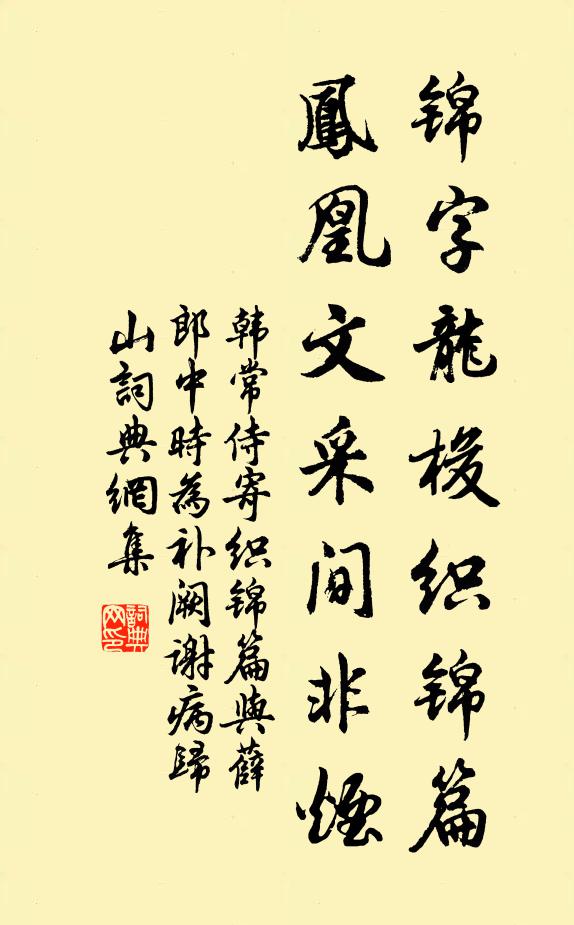 锦字龍梭织锦篇
鳳凰文采间非煙
韩常侍寄织锦篇與薛
郎中時為补阙谢病歸
山詞典網集
詞典
网印